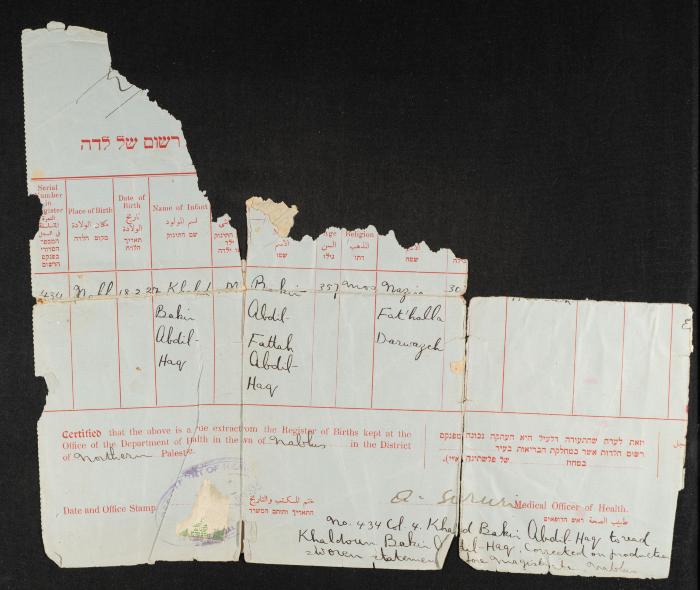 רשום של לדה
Serial Number in Register
النمرة المتسلسلة في السجل
המספר הסדורי בפנקס הרשום
Place of Birth
مكان الولادة
מקום הלדה
Date of Birth
تاريخ الولادة
תאריך הלדה
Name of Infant
اسم المولود
שם התינוק
الاسم
שמו
Age
السن
גילו
Religion
المذهب
דתו
434 Nabl 18.2.27 Khaled M Bakir 35 Mos Nazira 30
Bakir Abdil Fat'halla
Abdil- Fattah Darwazeh
Haq Abdil-
Haq
Certified that the above is a ue extract from the Register of Births kept at the
Office of the Department of alth in the wn of Nablus in the District
of Northern Palesti
וזאת לעדות שהתעודה דלעיל היא העתקה נכונה מפנקס
רשום הלדות אשר במחלקת הבריאות בעיר
במחוז של פלשתינה (א״י).
Date and Office Stamp
ختم المكتب والتاريخ
התאריך וחותם המשרד
Medical Officer of Health.
طبيب الصحة רופא
No. 434 Col 4. Khaled Bakir Abdil Haq to read
Khaldoun Bakir dil-Haq. Corrected on production
sworn statement Magistrate Nablus